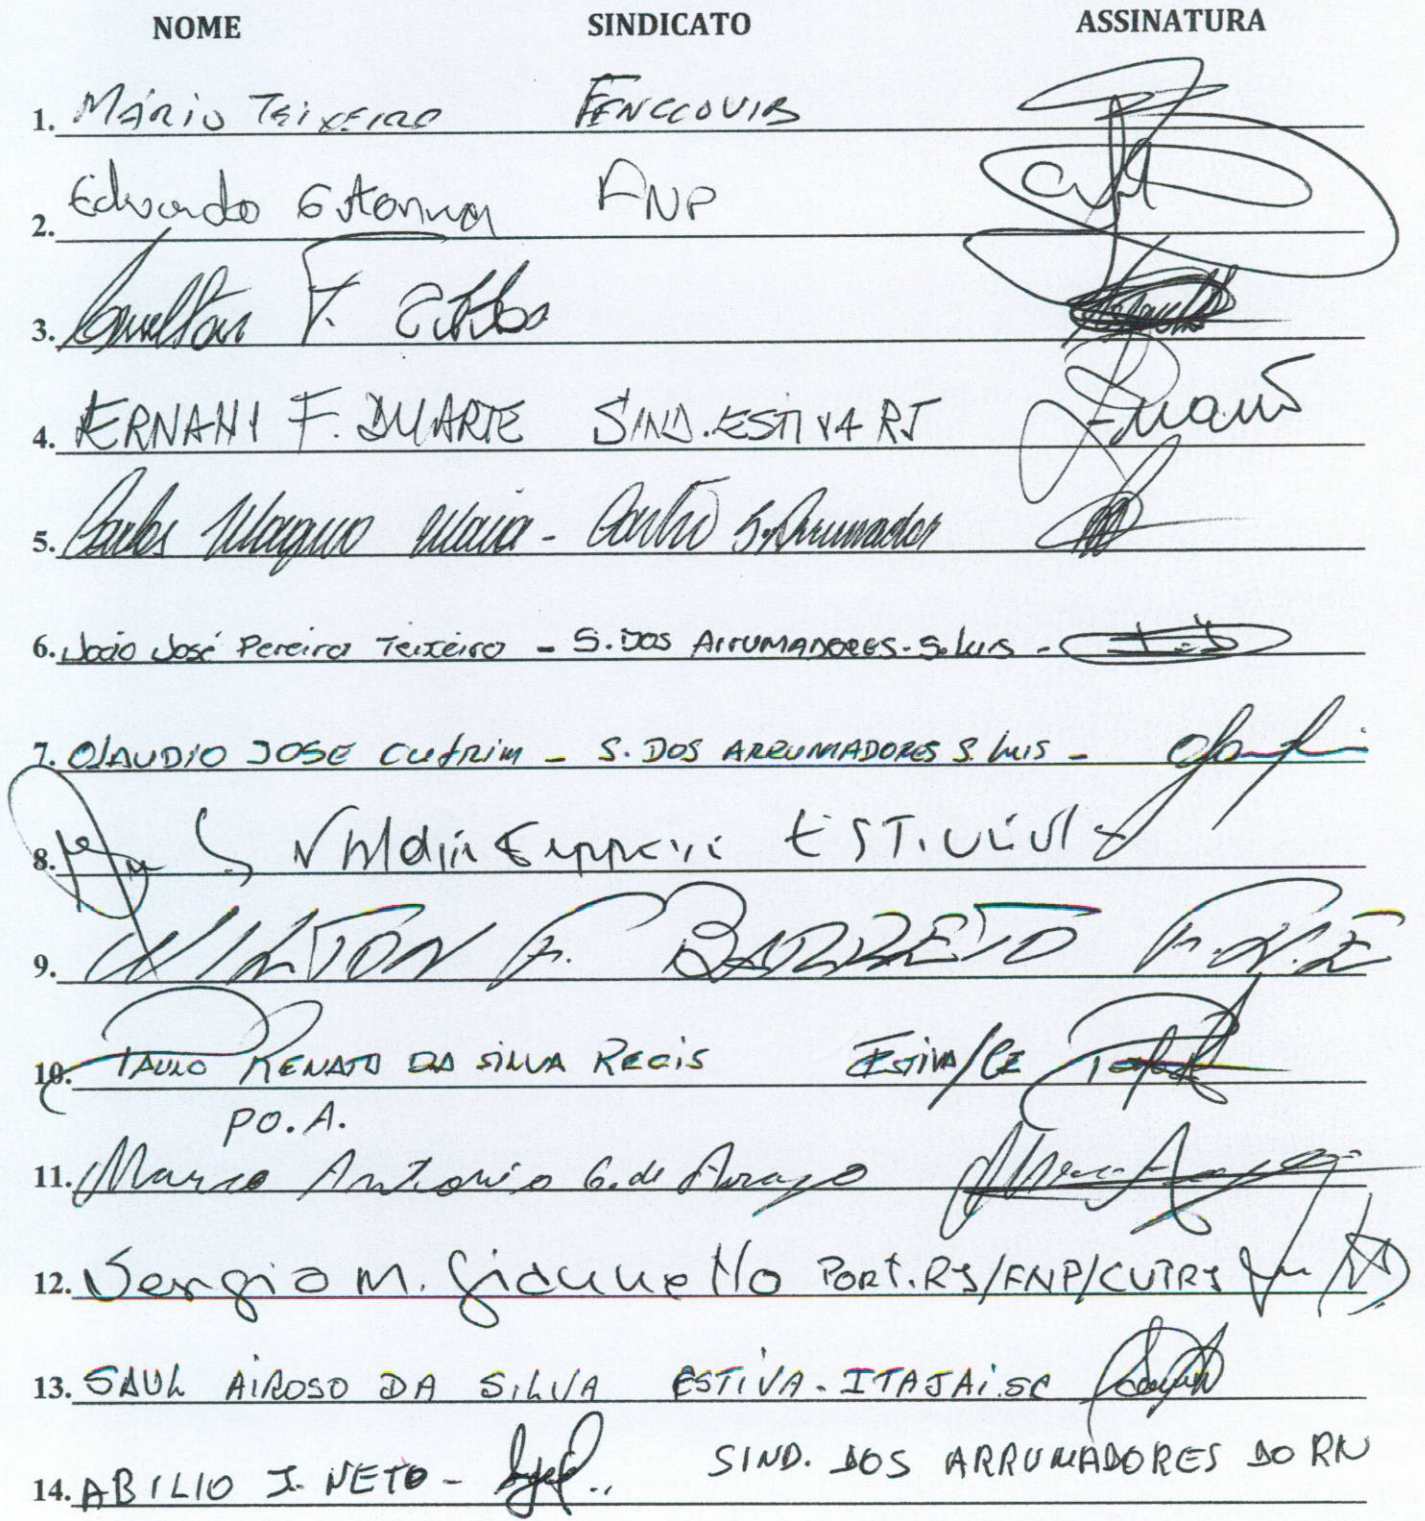 NOME SINDICATO ASSINATURA
1. MÁRIO TEIXEIRA FENCCOVIB
2. Eduardo FNP
3. F.
4. ERNANI F. DUARTE SIND. ESTIVA RJ
5. Carlos Magno Maia - S. Arrumador
6. João José Pereira Teixeira - S. DOS ARRUMADORES - S. LUIS -
7. CLAUDIO JOSE CUTRIM - S. DOS ARRUMADORES S. LUIS -
8.
9. WILTON F. BARRETO F.N.E
10. PAULO RENATO DA SILVA REGIS ESTIVA/CE
PO.A.
11. Marco Antonio G. de
12. Sergio M. Giannetto PORT. RJ/FNP/CUTRJ
13. SAUL AIROSO DA SILVA ESTIVA. ITAJAI. SC
14. ABILIO J. NETO - SIND. DOS ARRUMADORES DO RN